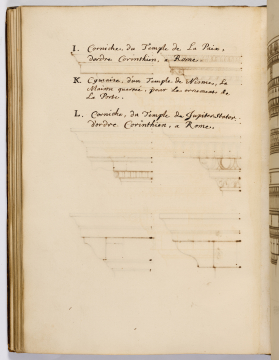 I. Corniche, du Temple de La Paix,
d'ordre Corinthien, a Rome.
K. Cymaise, d'un Temple de Nismes, La
Maison quarrée, pour Le
La Porte.
L. Corniche, du Temple de Jupiter Stator,
d'ordre Corinthien, a Rome.